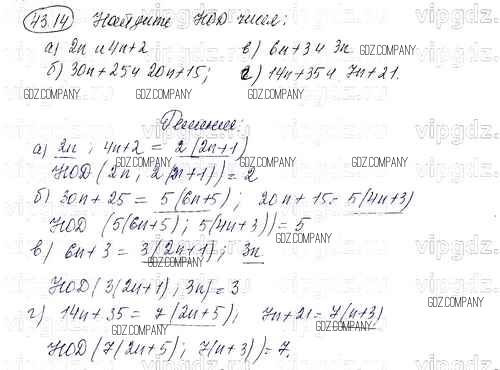 43.14 Найдите НОД чисел:
а) 2n и 4n+2 в) 6n+3 и 3n
б) 30n+25 и 20n+15; г) 14n+35 и 7n+21.
Решение:
а) 2n; 4n+2 = 2(2n+1)
НОД (2n; 2(2n+1)) = 2
б) 30n+25 = 5(6n+5); 20n+15 = 5(4n+3)
НОД (5(6n+5); 5(4n+3)) = 5
в) 6n+3 = 3(2n+1); 3n
НОД (3(2n+1); 3n) = 3
г) 14n+35 = 7(2n+5); 7n+21 = 7(n+3)
НОД (7(2n+5); 7(n+3)) = 7.